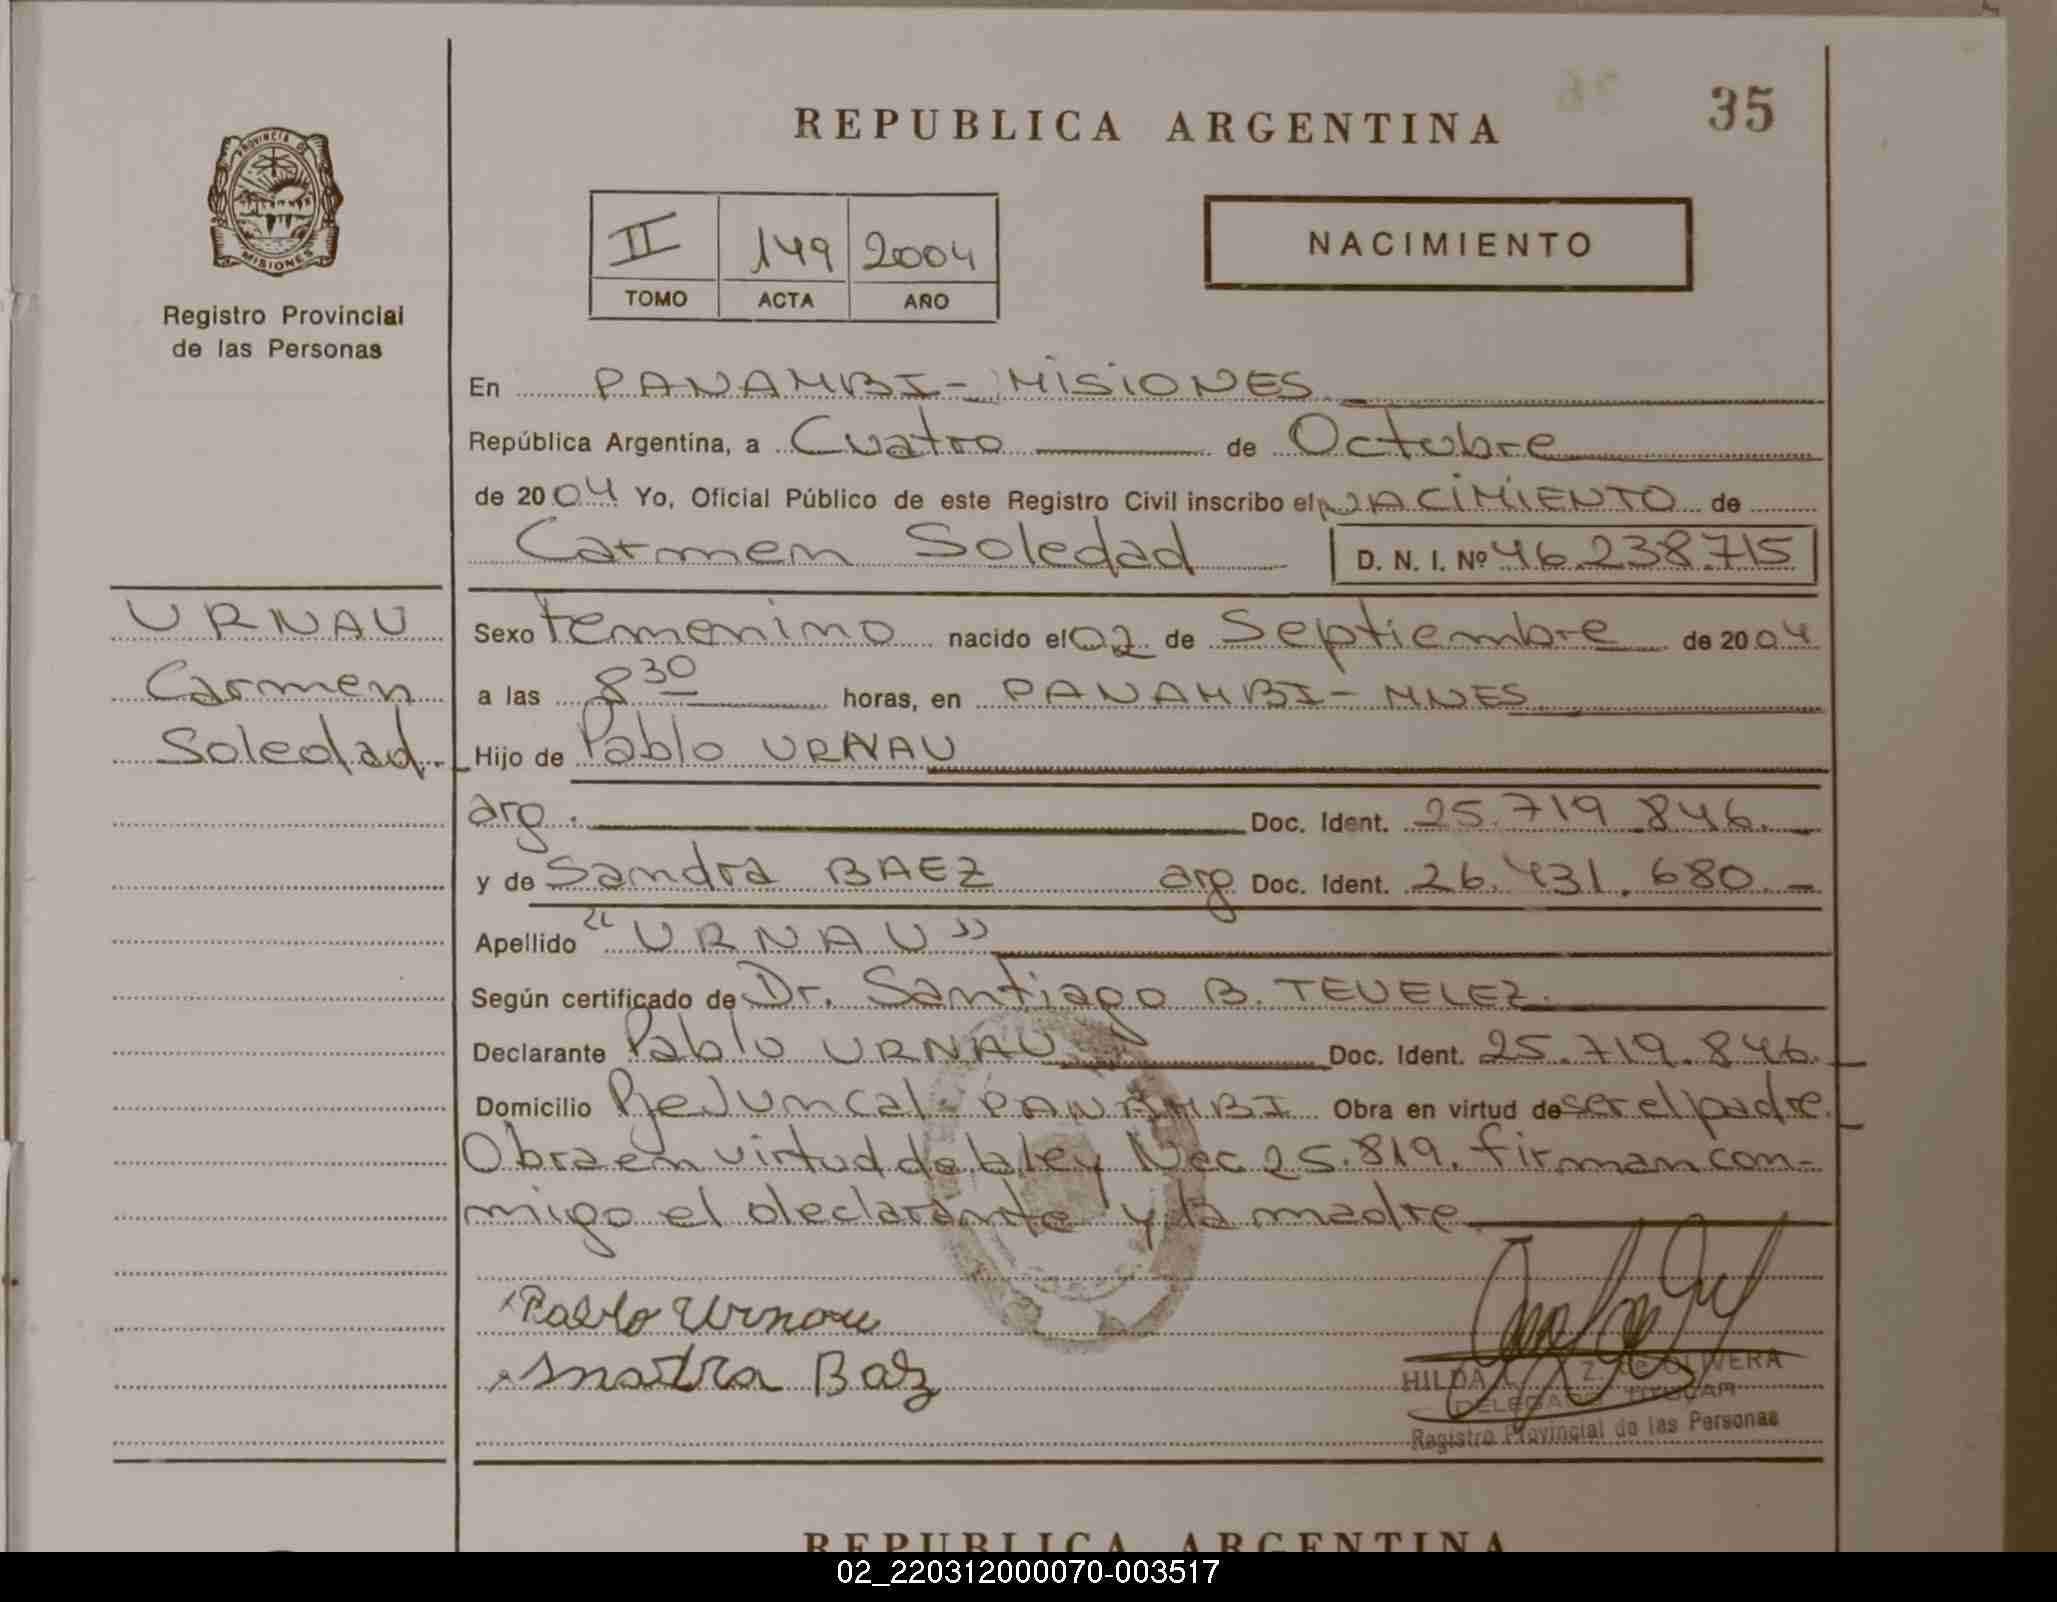 REPUBLICA ARGENTINA
35
PROVINCIA DE
MISIONES
Registro Provincial
de las Personas
II 149 2004
TOMO ACTA AÑO
NACIMIENTO
En PANAMBI - MISIONES
República Argentina, a Cuatro de Octubre
de 2004 Yo, Oficial Público de este Registro Civil inscribo el NACIMIENTO de
Carmen Soledad D. N. I. Nº 46.238.715
URNAU
Carmen
Soledad.-
Sexo femenino nacido el 02 de Septiembre de 2004
a las 8 30 horas, en PANAMBI - MNES
Hijo de Pablo URNAU
arg. Doc. Ident. 25.719.846.-
y de Sandra BAEZ arg Doc. Ident. 26.431.680.-
Apellido "URNAU"
Según certificado de Dr. Santiago B. TEVELEZ.
Declarante Pablo URNAU Doc. Ident. 25.719.846.-
Domicilio PANAMBI Obra en virtud de ser el padre.-
Obra en virtud de la ley Nac 25.819. firman con-
migo el declarante y la madre.
Pablo Urnau
Baz
HILDA Z. de OLIVERA
DELEGADO TITULAR
Registro Provincial de las Personas
REPUBLICA ARGENTINA
02_220312000070-003517